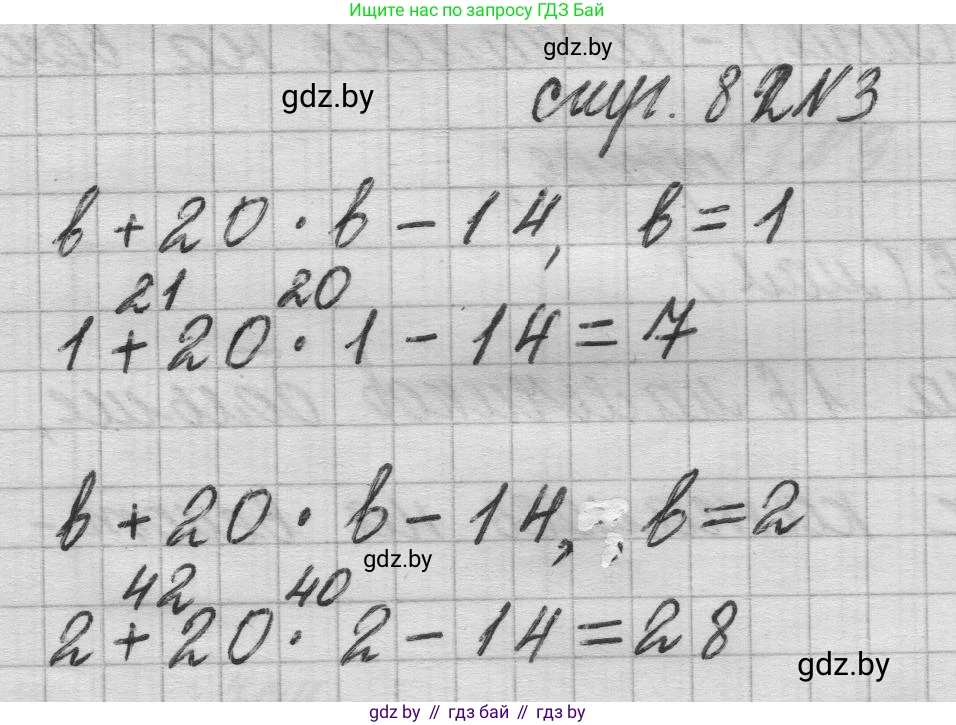 Ищите нас по запросу ГДЗ Бай
gdz.by
gdz.by
стр. 82 №3
в + 20 · в - 14, в = 1
21 20
1 + 20 · 1 - 14 = 7
в + 20 · в - 14, в = 2
gdz.by
42 40
2 + 20 · 2 - 14 = 28
gdz.by
gdz.by // гдз бай // gdz.by